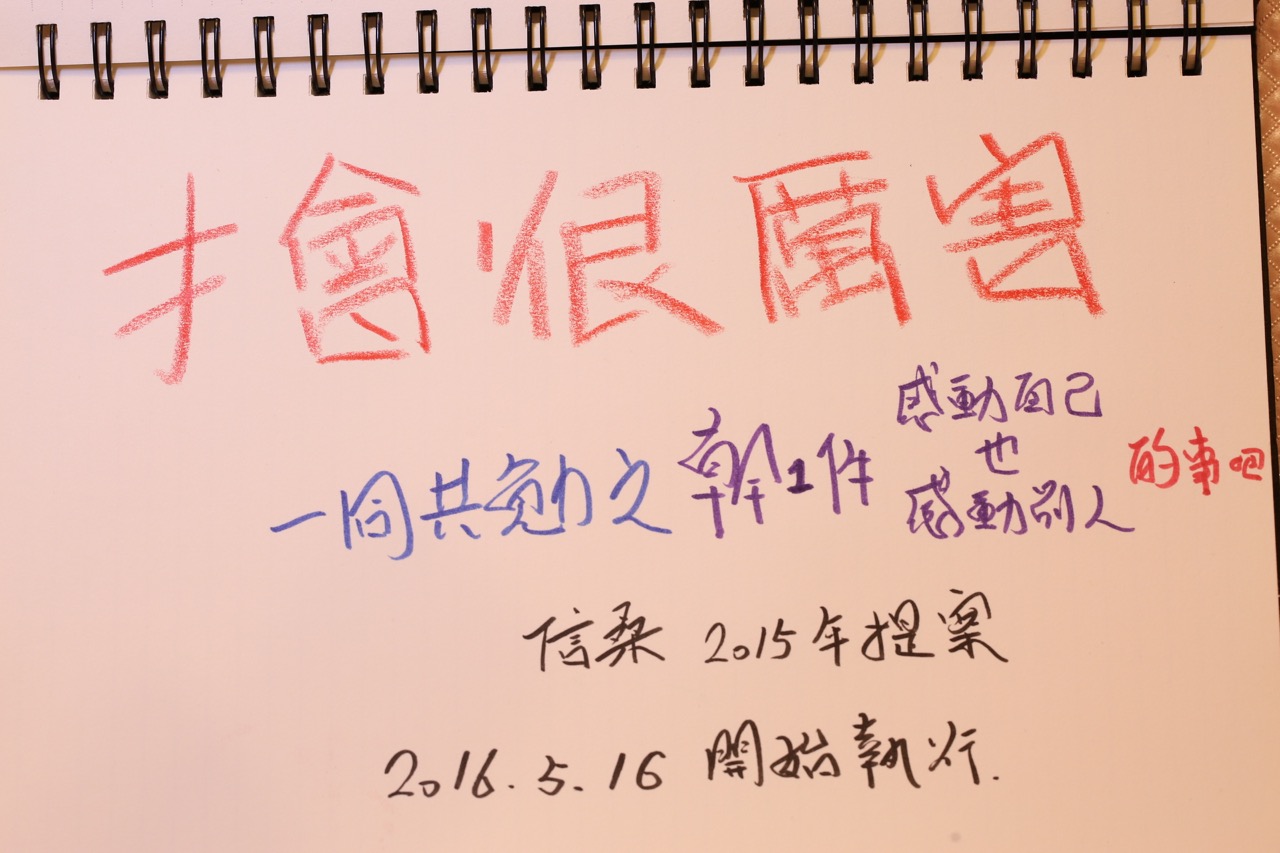 才會很厲害
一同共勉之 幹1件 感動自己
也
感動別人 的事吧
信桑 2015年提案
2016.5.16 開始執行.